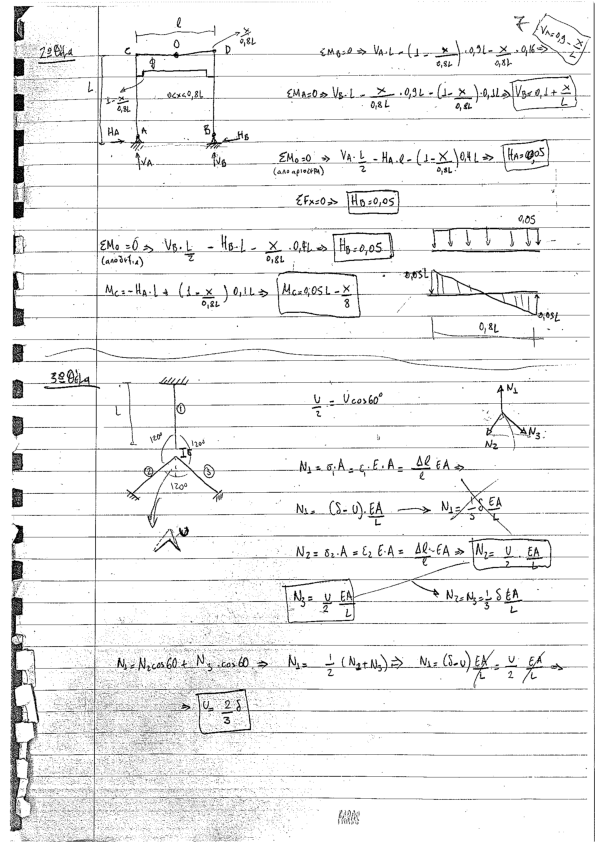 7
2º Θέμα
l
x/0,8L
C O D
L
φ
1-x/0,8L
0<x<0,8L
HA A B HB
VA VB
ΣMB=0 ⇒ VA·L - (1-x/0,8L)·0,9L - x/0,8L·0,1L ⇒ VA=0,9-x/L
ΣMA=0 ⇒ VB·L - x/0,8L·0,9L - (1-x/0,8L)·0,1L ⇒ VB=0,1+x/L
ΣMo=0 ⇒ VA·L/2 - HA·l - (1-x/0,8L)0,4L ⇒ HA=0,05
(αποαριστερα)
ΣFx=0 ⇒ HB=0,05
ΣMo=0 ⇒ VB·L/2 - HB·L - x/0,8L·0,4L ⇒ HB=0,05
(αποδεξια)
Mc=-HA·L + (1-x/0,8L)0,1L ⇒ Mc=0,05L-x/8
0,05
0,05L
0,05L
0,8L
3º Θέμα
L
①
120° 120°
δ
② ③
120°
U
U/2 = Ucos60°
N1
N2 N3
N1=σ1·A=ε1·E·A=Δl/l EA ⇒
N1=(δ-U)·EA/L → N1=1/3 δ EA/L
N2=σ2·A=ε2 E·A=Δl/l·EA ⇒ N2=U/2·EA/L
N3=U/2 EA/L
N2=N3=1/3 δ EA/L
N1=N2cos60+N3·cos60 ⇒ N1=1/2(N2+N3) ⇒ N1=(δ-U)EA/L=U/2 EA/L ⇒
⇒ U=2/3 δ